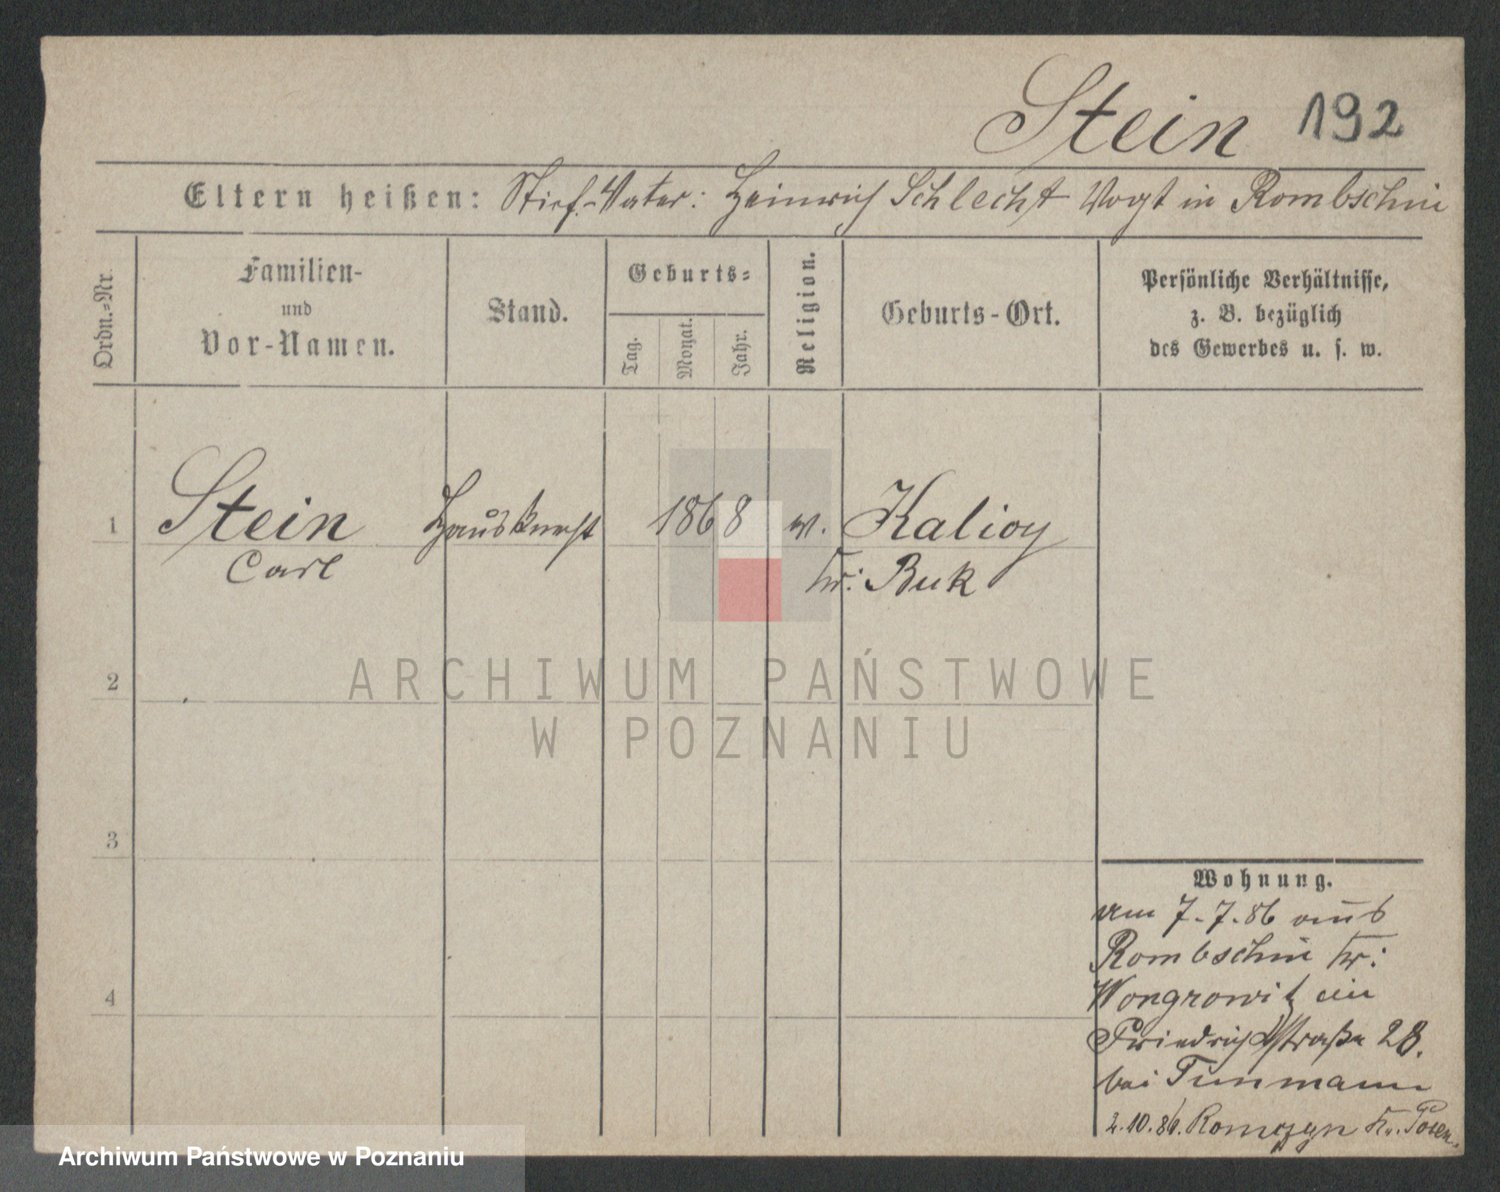 Stein 192
Eltern heißen: Stief-Vater: Heinrich Schlecht Vogt in Rombschin
Ordn.-Nr.
Familien-
und
Vor-Namen.
Stand.
Geburts-
Tag.
Monat.
Jahr.
Religion.
Geburts-Ort.
Persönliche Verhältnisse,
z. B. bezüglich
des Gewerbes u. s. w.
1 Stein Hausknecht 1868 Kalioy
Carl Kr: Buk
2
3
4
Wohnung.
am 7.7.86 aus
Rombschin Kr:
Wongrowitz ein
Friedrichstraße 28.
bei Tunmann
2.10.86. Kr. Posen.
ARCHIWUM PAŃSTWOWE
W POZNANIU
Archiwum Państwowe w Poznaniu